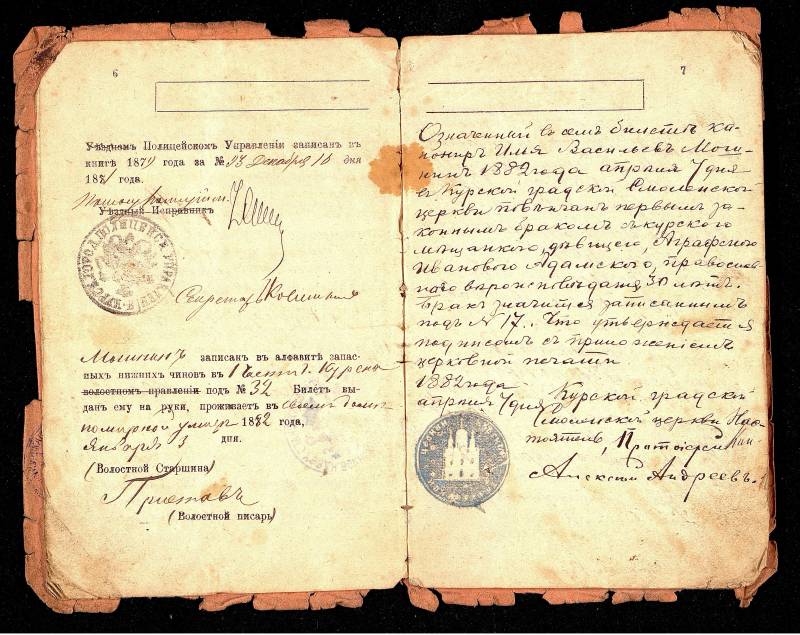 6
Уѣздномъ Полицейскомъ Управленіи записанъ въ
книгѣ 1871 года за № 93 Декабря 10 дня
1871 года.
Уѣздный Исправникъ
Секретарь
КУРСК ГОРОД ПОЛИЦЕЙСК УПРАВЛЕНІЯ
записанъ въ алфавитѣ запас-
ныхъ нижнихъ чиновъ въ 1 части г. Курска
волостномъ правленіи подъ № 32 Билетъ вы-
данъ ему на руки, проживаетъ въ своемъ домѣ
улицѣ 1882 года,
Января 3 дня.
(Волостной Старшина)
Приставъ
(Волостной писарь)
7
Означенный въ семъ билетѣ ка-
нониръ Васильевъ
1882 года апрѣля 7 дня
въ Курской градской Смоленской
церкви повѣнчанъ первымъ за-
коннымъ бракомъ съ курскою
мѣщанкою, дѣвицею, Аграфеною
Ивановою Адамскою, православ-
наго вѣроисповѣданія, 30 лѣтъ.
Бракъ значится записаннымъ
подъ № 17. Что утверждается
подписомъ съ приложеніемъ
церковной печати
1882 года
апрѣля 7 дня Курской градской
Смоленской церкви Нас-
тоятель, Протоіерей
Алексій Андреевъ